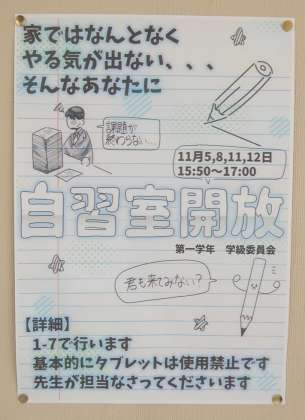 家ではなんとなく
やる気が出ない、、、
そんなあなたに
課題が
終わらない…
11月5,8,11,12日
15:50～17:00
自習室開放
第一学年　学級委員会
君も来てみない?
【詳細】
1-7で行います
基本的にタブレットは使用禁止です
先生が担当なさってくださいます